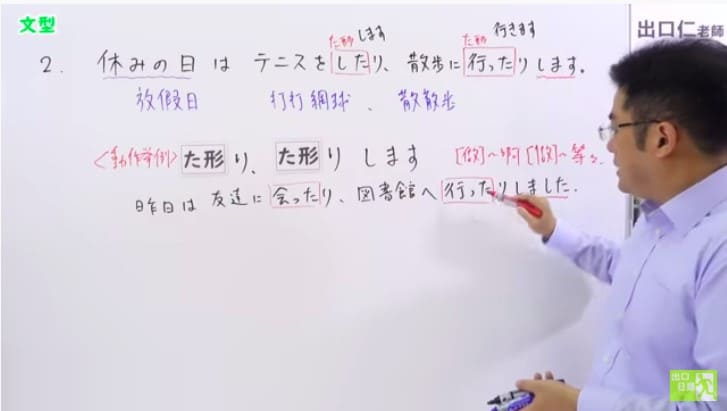 文型
出口仁老師
た形 します
た形 行きます
2. 休みの日は テニスを したり、散歩に 行ったりします。
放假日 打打網球、散散步
<動作举例> た形 り、た形 り します [做]~啊 [做]~等々.
昨日は 友達に 会ったり、図書館へ 行ったりしました.
出口
日語